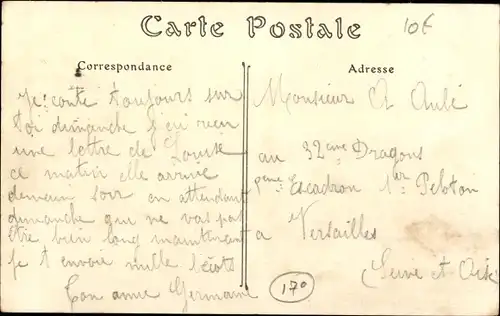 Carte Postale
10€
Correspondance
Je conte toujours sur
toi dimanche j'ai recu
une lettre de Louise
ce matin elle arrive
demain soir en attendant
dimanche que ne vas pas
être bien long maintenant
je t envoie mille
Ton amie Germaine
Adresse
Monsieur A Aubé
au 32eme Dragons
Escadron 1er Peloton
a Versailles
Seine et Oise
170